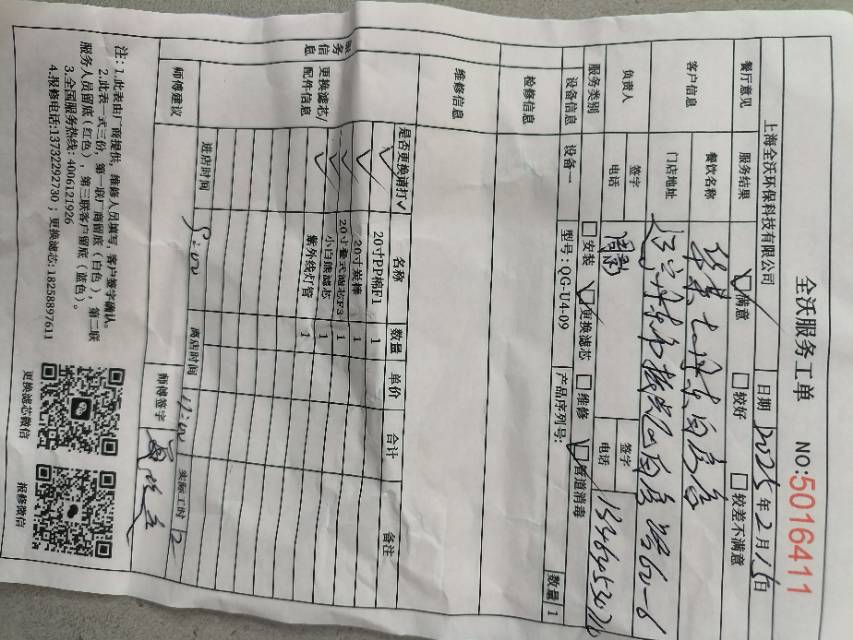 全沃服务工单 NO:5016411
上海全沃环保科技有限公司 日期 2025年2月15日
餐厅意见 服务结果 满意 较好 较差不满意
客户信息 餐饮名称
门店地址
负责人 签字 签字
电话 电话
服务类别 安装 更换滤芯 维修 管道消毒
设备信息 设备一 型号:QG-U4-09 产品序列号: 数量 1
检修信息
维修信息
服务信息
更换滤芯/配件信息
是否更换请打✓ 名称 数量 单价 合计 备注
✓ 20寸PP棉F1 1
✓ 20寸炭棒 1
✓ 20寸叠式滤芯F3 1
✓ 小白熊滤芯 1
✓ 紫外线灯管 1
师傅建议 进店时间 9:00 离店时间 11:00 实际工时 2
师傅签字
注:1.此表由厂商提供,维修人员填写,客户签字确认。
2.此表一式三份,第一联厂商留底(白色),第二联
服务人员留底(红色),第三联客户留底(蓝色)。
3.全国服务热线:4006121926
4.报修电话:13732292730;更换滤芯:18258897611
更换滤芯微信 报修微信